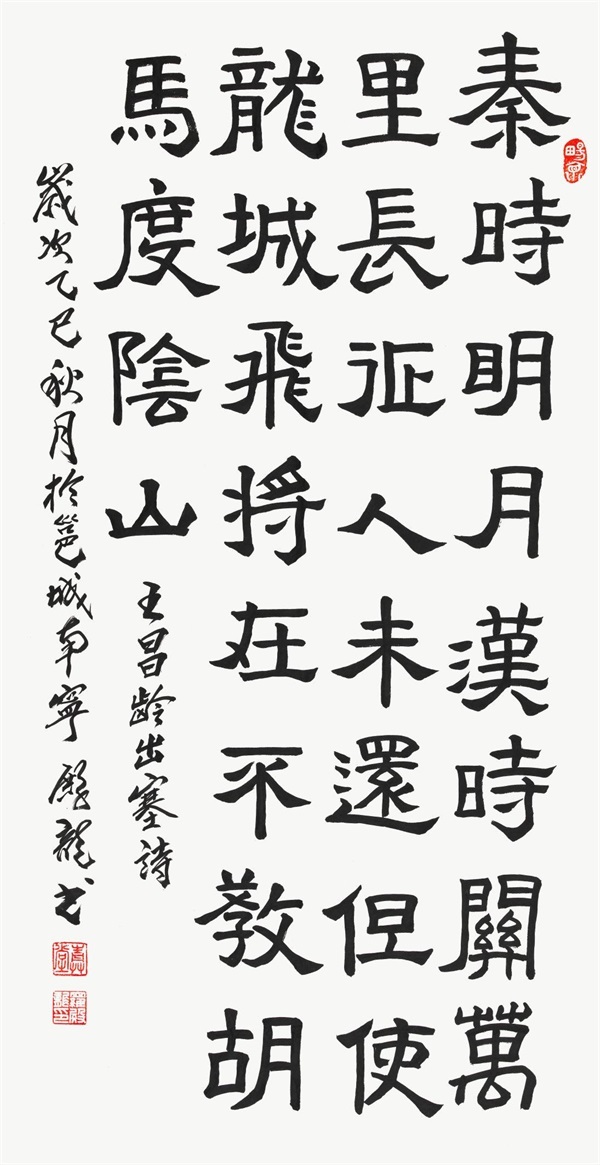 秦時明月漢時關萬
里長征人未還但使
龍城飛將在不教胡
馬度陰山
王昌齡出塞詩
歲次乙巳秋月於邕城南寧 龍书